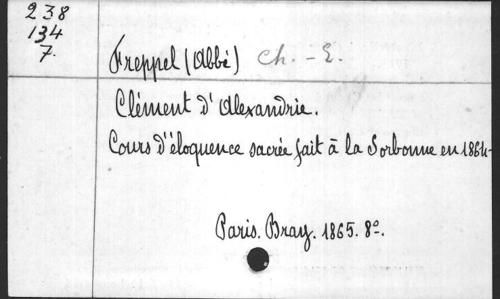 238
134
7.
Freppel (Abbé) Ch. - E.
Clément d'Alexandrie.
Cours d'éloquence sacrée fait à la Sorbonne en 1864-
Paris. Bray. 1865. 8º.